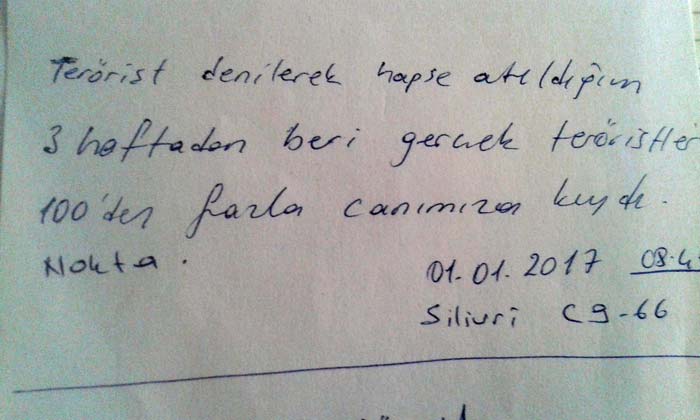 Terörist denilerek hapse atıldığım
3 haftadan beri gerçek teröristler
100'den fazla canımıza kıydı.
Nokta.
01.01.2017
Silivri C9-66